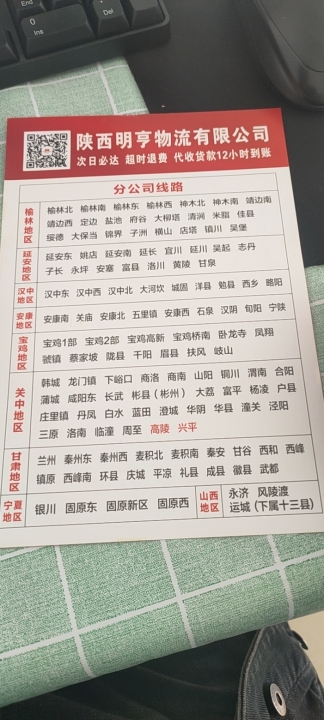 0
Ins
.
Del
陕西明亨物流有限公司
次日必达 超时退费 代收货款12小时到账
分公司线路
榆林地区
榆林北 榆林南 榆林东 榆林西 神木北 神木南 靖边南
靖边西 定边 盐池 府谷 大柳塔 清涧 米脂 佳县
绥德 大保当 锦界 子洲 横山 店塔 镇川 吴堡
延安地区
延安东 姚店 延安南 延长 宜川 延川 吴起 志丹
子长 永坪 安塞 富县 洛川 黄陵 甘泉
汉中地区
汉中东 汉中西 汉中北 大河坎 城固 洋县 勉县 西乡 略阳
安康地区
安康南 关庙 安康北 五里镇 安康西 石泉 汉阴 旬阳 宁陕
宝鸡地区
宝鸡1部 宝鸡2部 宝鸡高新 宝鸡桥南 卧龙寺 凤翔
虢镇 蔡家坡 陇县 千阳 眉县 扶风 岐山
关中地区
韩城 龙门镇 下峪口 商洛 商南 山阳 铜川 渭南 合阳
蒲城 咸阳东 长武 彬县（彬州） 大荔 富平 杨凌 户县
庄里镇 丹凤 白水 蓝田 澄城 华阴 华县 潼关 泾阳
三原 洛南 临潼 周至 高陵 兴平
甘肃地区
兰州 秦州东 秦州西 麦积北 麦积南 秦安 甘谷 西和 西峰
镇原 西峰南 环县 庆城 平凉 礼县 成县 徽县 武都
宁夏地区
银川 固原东 固原新区 固原西
山西地区
永济 风陵渡
运城（下属十三县）